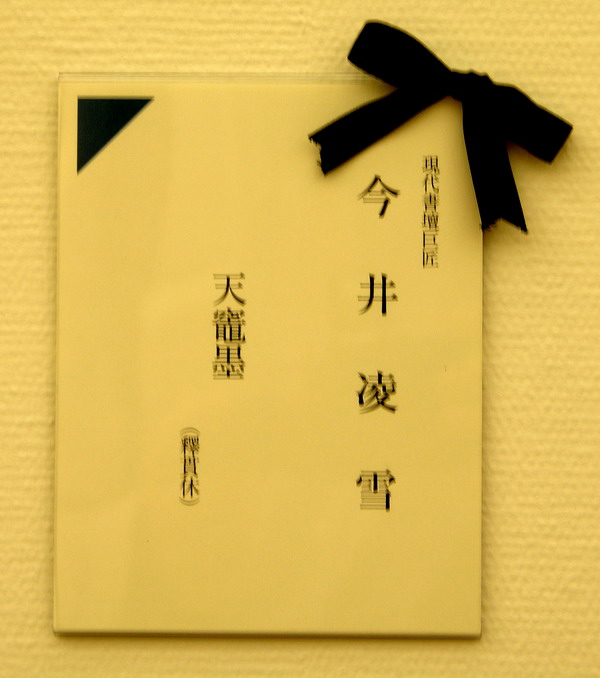 現代書壇巨匠
今井凌雪
天竈墨
(釋貫休)